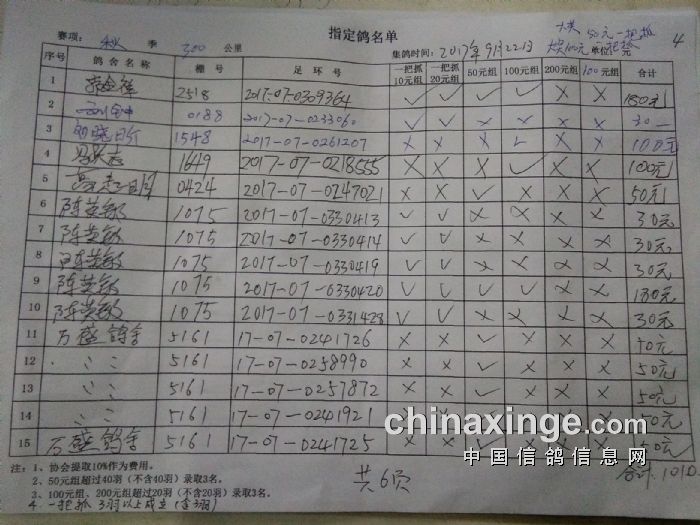 指定鸽名单
赛项： 秋 季 300 公里 集鸽时间：2017年9月22日 单位：元 4
序号 鸽舍名称 棚号 足环号 一把抓10元组 一把抓20元组 50元组 100元组 200元组 100元组 合计
1 2518 2017-07-0309364 ✓ ✓ ✓ ✓ × × 180元
2 0188 2017-07-0233060 ✓ ✓ × × × × 30
3 1548 2017-07-0261207 × × × ✓ × × 100元
4 1649 2017-07-0218555 × × × ✓ × × 100元
5 0424 2017-07-0247021 × × ✓ × × × 50元
6 陈英敏 1075 2017-07-0330413 ✓ ✓ × × × × 30元
7 陈英敏 1075 2017-07-0330414 ✓ ✓ × × × × 30元
8 陈英敏 1075 2017-07-0330419 ✓ ✓ × × × × 30元
9 陈英敏 1075 2017-07-0330420 ✓ ✓ ✓ ✓ × × 180元
10 陈英敏 1075 2017-07-0331428 ✓ ✓ × × × × 30元
11 万盛鸽舍 5161 17-07-0241726 × × ✓ × × × 50元
12 〃 〃 5161 17-07-0258990 × × ✓ × × × 50元
13 〃 〃 5161 17-07-0257872 × × ✓ × × × 50元
14 〃 〃 5161 17-07-0241921 50元
15 万盛鸽舍 5161 17-07-0241725 × × ✓ × × × 50元
chinaxinge.com
中国信鸽信息网
合计：1010
注：1、协会提取10%作为费用。
2、50元组超过40羽（不含40羽）录取3名。
3、100元组、200元组超过20羽（不含20羽）录取3名。
4、一把抓3羽以上成立（含3羽）
共6页